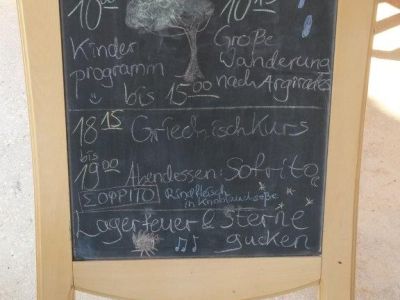 10⁰⁰ 10¹⁵
Kinder Große
programm Wanderung
nach Argirades
bis 15⁰⁰
18¹⁵ Griechischkurs
bis
19⁰⁰ Abendessen: Sofrito
ΣΟΦΡΙΤΟ Rindfleisch
in Knoblauchsoße
Lagerfeuer & Sterne
gucken